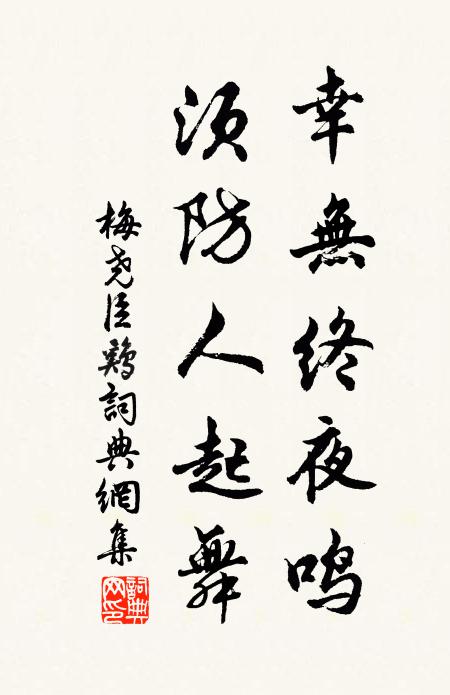 幸無終夜鸣
須防人起舞
梅尧臣鷄詞典網集
詞典网印